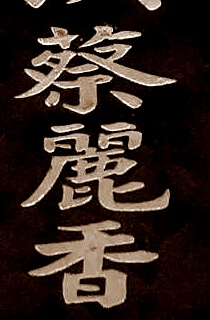 蔡麗香